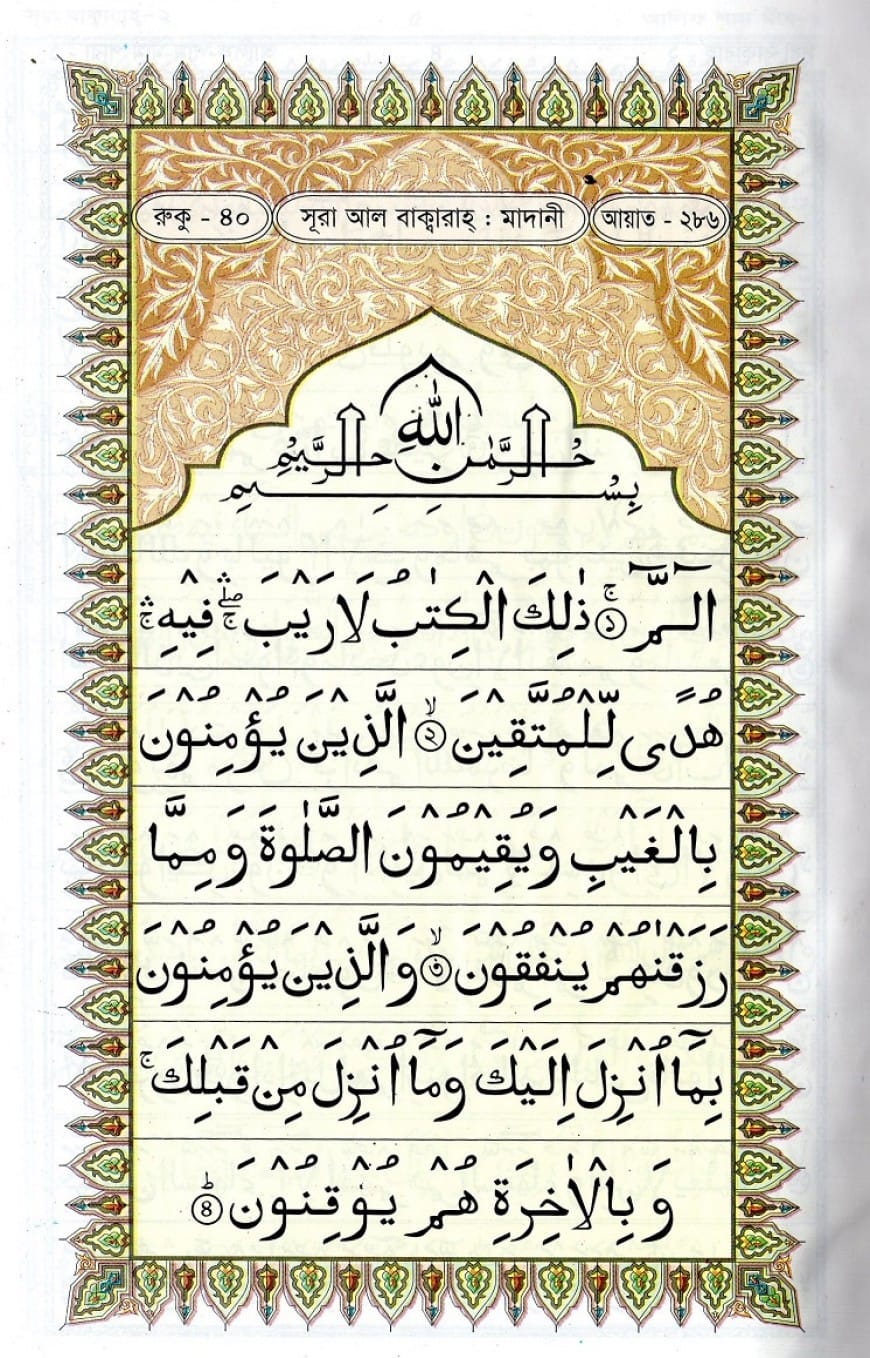 রুকু - ৪০ সূরা আল বাক্বারাহ্ : মাদানী আয়াত - ২৮৬
بِسْــــــــمِ اللهِ الرَّحْمٰنِ الرَّحِيْمِ
الٓـمّٓ ۚ﴿١﴾ ذٰلِكَ الْكِتٰبُ لَا رَيْبَ ۛۖۚ فِيْهِ ۛۚ
هُدًى لِّلْمُتَّقِيْنَ ۙ﴿٢﴾ الَّذِيْنَ يُؤْمِنُوْنَ
بِالْغَيْبِ وَيُقِيْمُوْنَ الصَّلٰوةَ وَمِمَّا
رَزَقْنٰهُمْ يُنْفِقُوْنَ ۙ﴿٣﴾ وَالَّذِيْنَ يُؤْمِنُوْنَ
بِمَآ اُنْزِلَ اِلَيْكَ وَمَآ اُنْزِلَ مِنْ قَبْلِكَ ۚ
وَبِالْاٰخِرَةِ هُمْ يُوْقِنُوْنَ ؕ﴿٤﴾